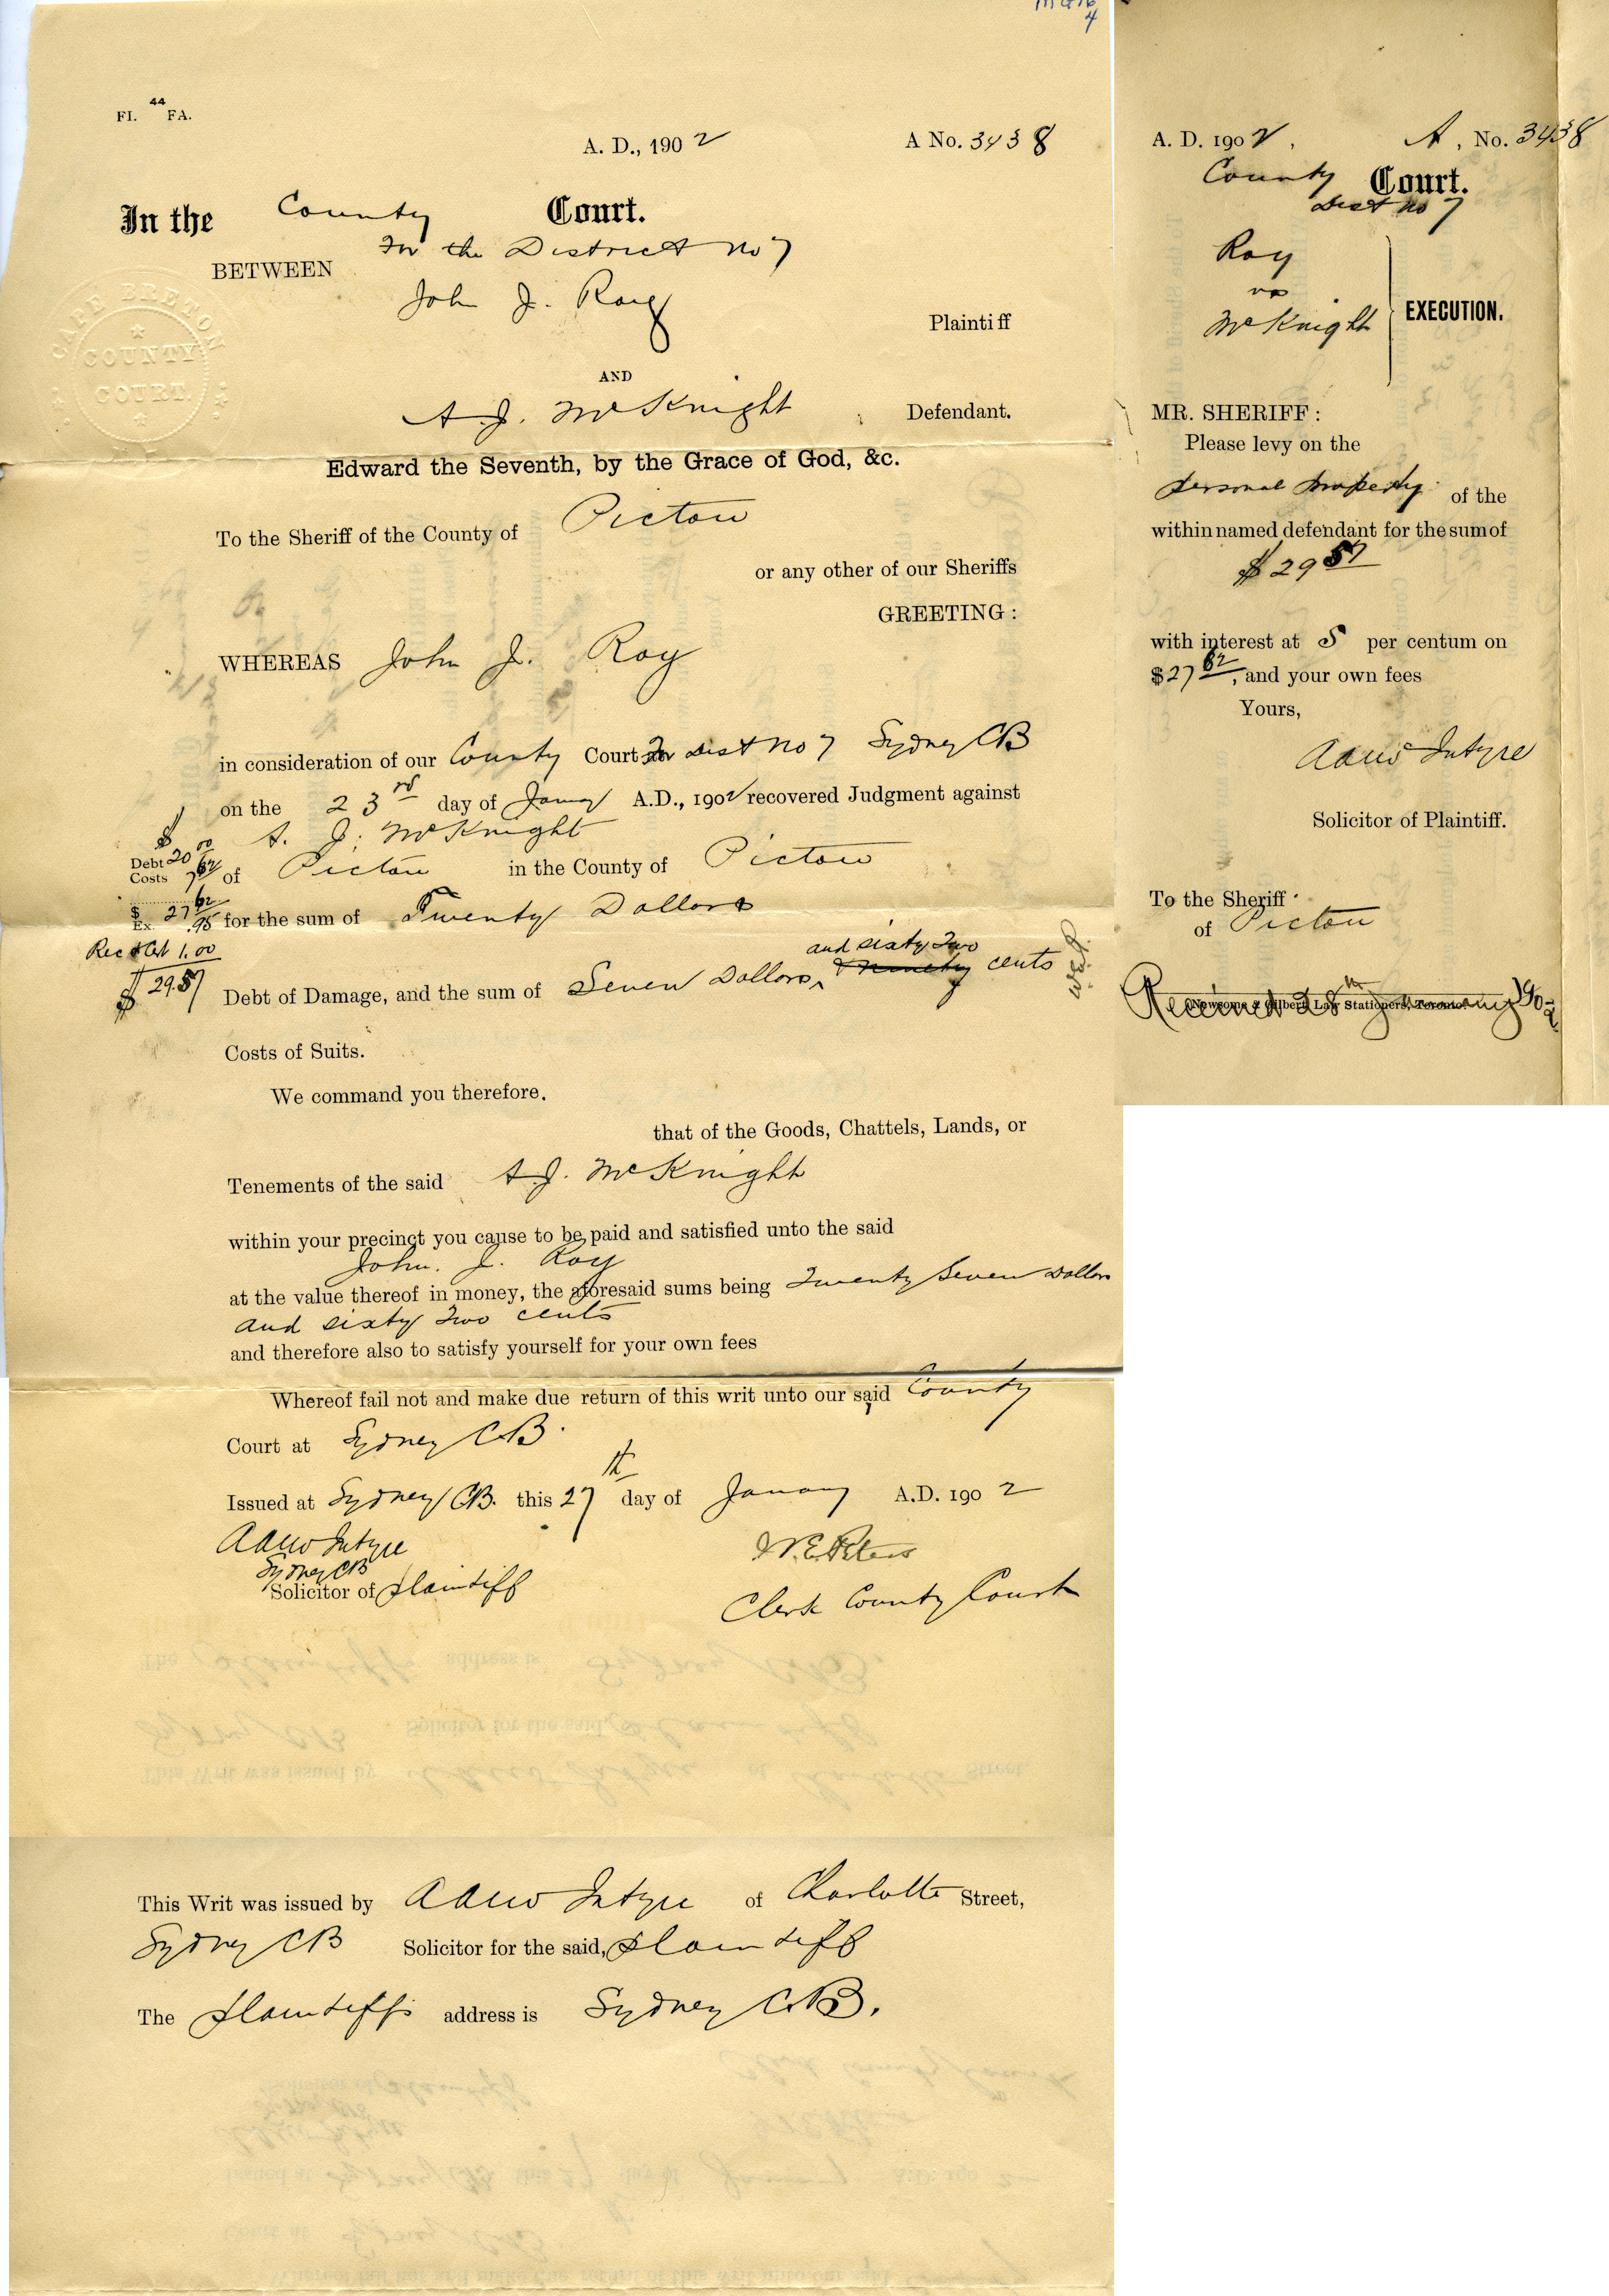 MG16
4
FI. 44 FA.
A. D., 1902 A No. 3438
In the County Court.
For the District No 7
BETWEEN
John J. Roy
Plaintiff
CAPE BRETON
COUNTY
COURT.
AND
A. J. McKnight Defendant.
Edward the Seventh, by the Grace of God, &c.
To the Sheriff of the County of Pictou
or any other of our Sheriffs
GREETING :
WHEREAS John J. Roy
in consideration of our County Court For Dist No 7 Sydney CB
on the 23rd day of Jany A.D., 1902 recovered Judgment against
A. J. McKnight
of Pictou in the County of Pictou
$
Debt 20 00
Costs 7 62
$ 27 62
Ex. .95
1.00
$ 29.57
for the sum of Twenty Dollars
and sixty Two
Debt of Damage, and the sum of Seven Dollars, & ninety cents
W.E.P.
Costs of Suits.
We command you therefore.
that of the Goods, Chattels, Lands, or
Tenements of the said A. J. McKnight
within your precinct you cause to be paid and satisfied unto the said
John. J. Roy
at the value thereof in money, the aforesaid sums being Twenty Seven Dollars
and sixty Two cents
and therefore also to satisfy yourself for your own fees
Whereof fail not and make due return of this writ unto our said County
Court at Sydney CB.
Issued at Sydney CB. this 27th day of January A.D. 1902
A A McIntyre
Sydney CB
Solicitor of Plaintiff
W. E. Peters
Clerk County Court
This Writ was issued by A A McIntyre of Charlotte Street,
Sydney CB Solicitor for the said, Plaintiff
The Plaintiffs address is Sydney C.B.
A. D. 1902, A, No. 3438
County Court.
Dist No 7
Roy
vs
McKnight
EXECUTION.
MR. SHERIFF :
Please levy on the
personal property of the
within named defendant for the sum of
$ 29 57
with interest at 5 per centum on
$27 62, and your own fees
Yours,
A A McIntyre
Solicitor of Plaintiff.
To the Sheriff
of Pictou
Newsome & Gilbert, Law Stationers, Toronto.
Received 28th January 1902